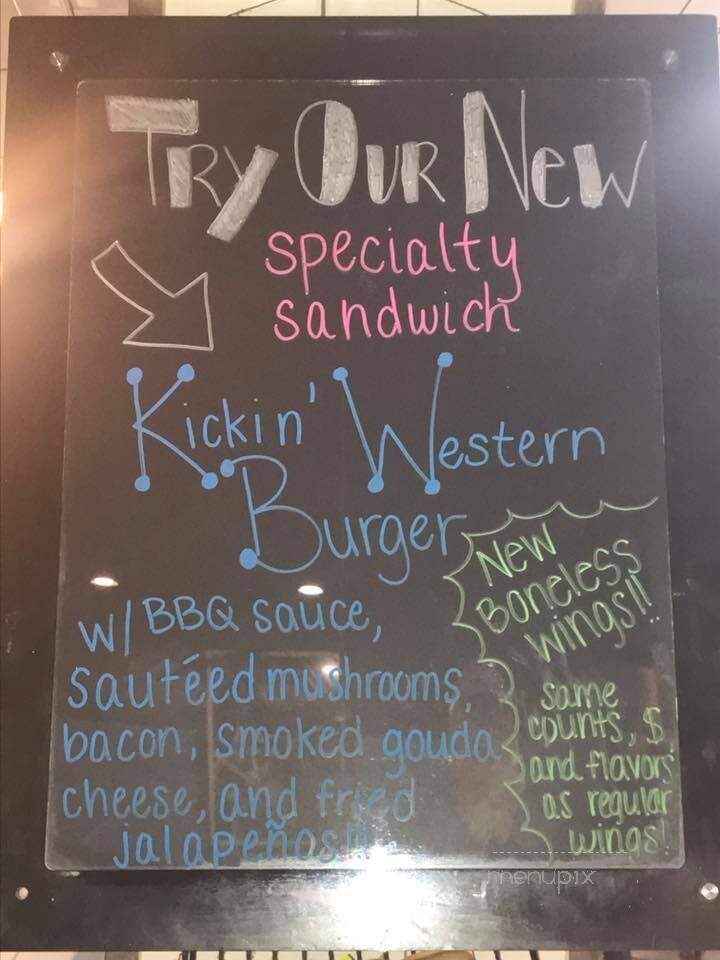 TRY OUR NEW
specialty
sandwich
Kickin' Western
Burger
w/ BBQ sauce,
sautéed mushrooms,
bacon, smoked gouda
cheese, and fried
jalapeños!!!
NEW
BONELESS
WINGS!!
same
counts, $
and flavors
as regular
wings!
menupix